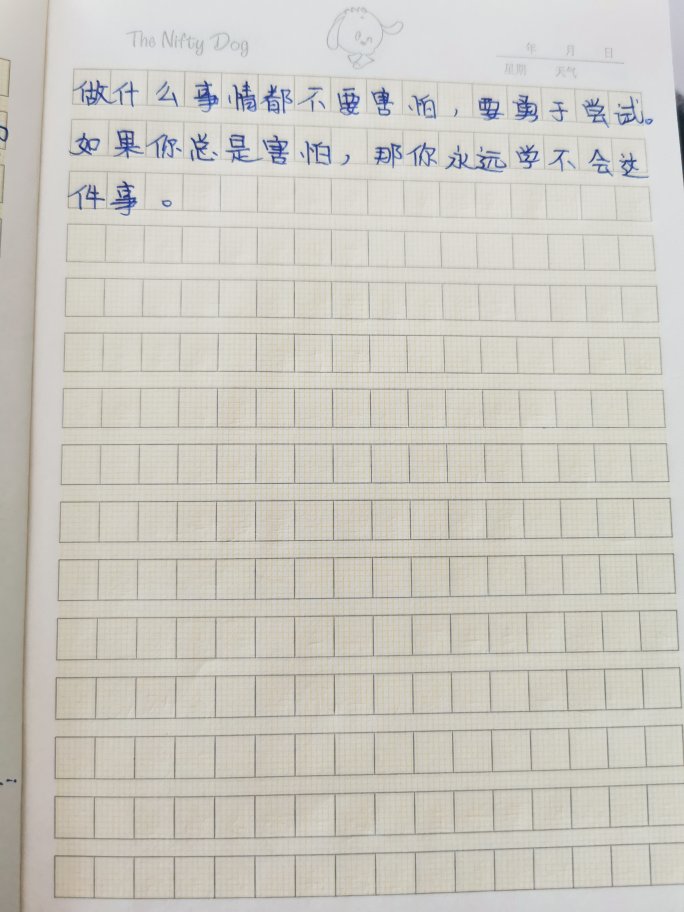 The Nifty Dog
年 月 日
星期 天气
做什么事情都不要害怕，要勇于尝试。
如果你总是害怕，那你永远学不会这
件事。